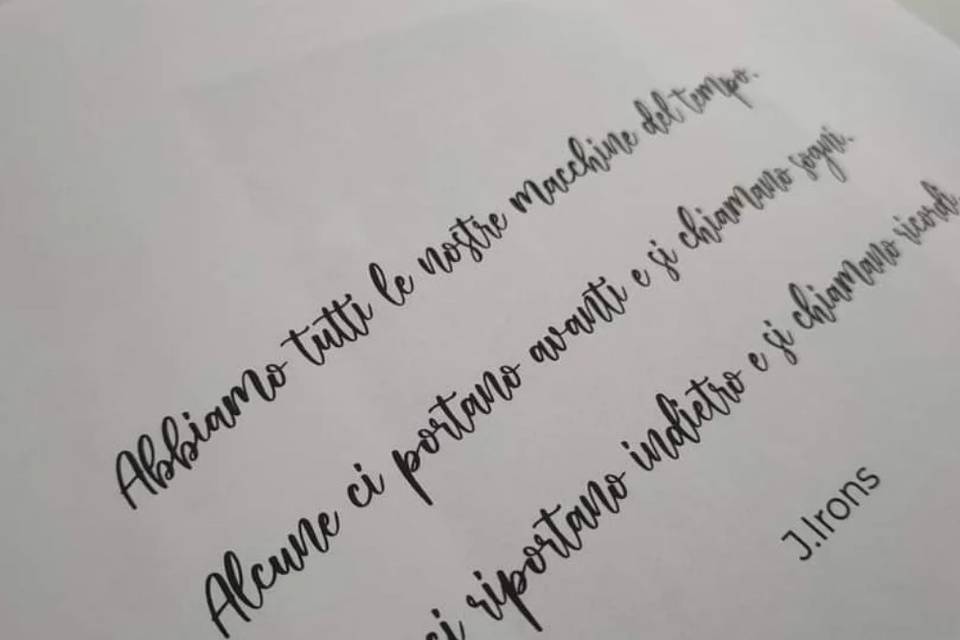 Abbiamo tutti le nostre macchine del tempo.
Alcune ci portano avanti e si chiamano sogni.
ci riportano indietro e si chiamano ricordi.
J.Irons